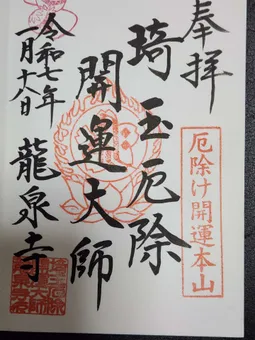 奉拝
厄除け開運本山
埼玉厄除
開運大師
龍泉寺
令和七年
一月十八日